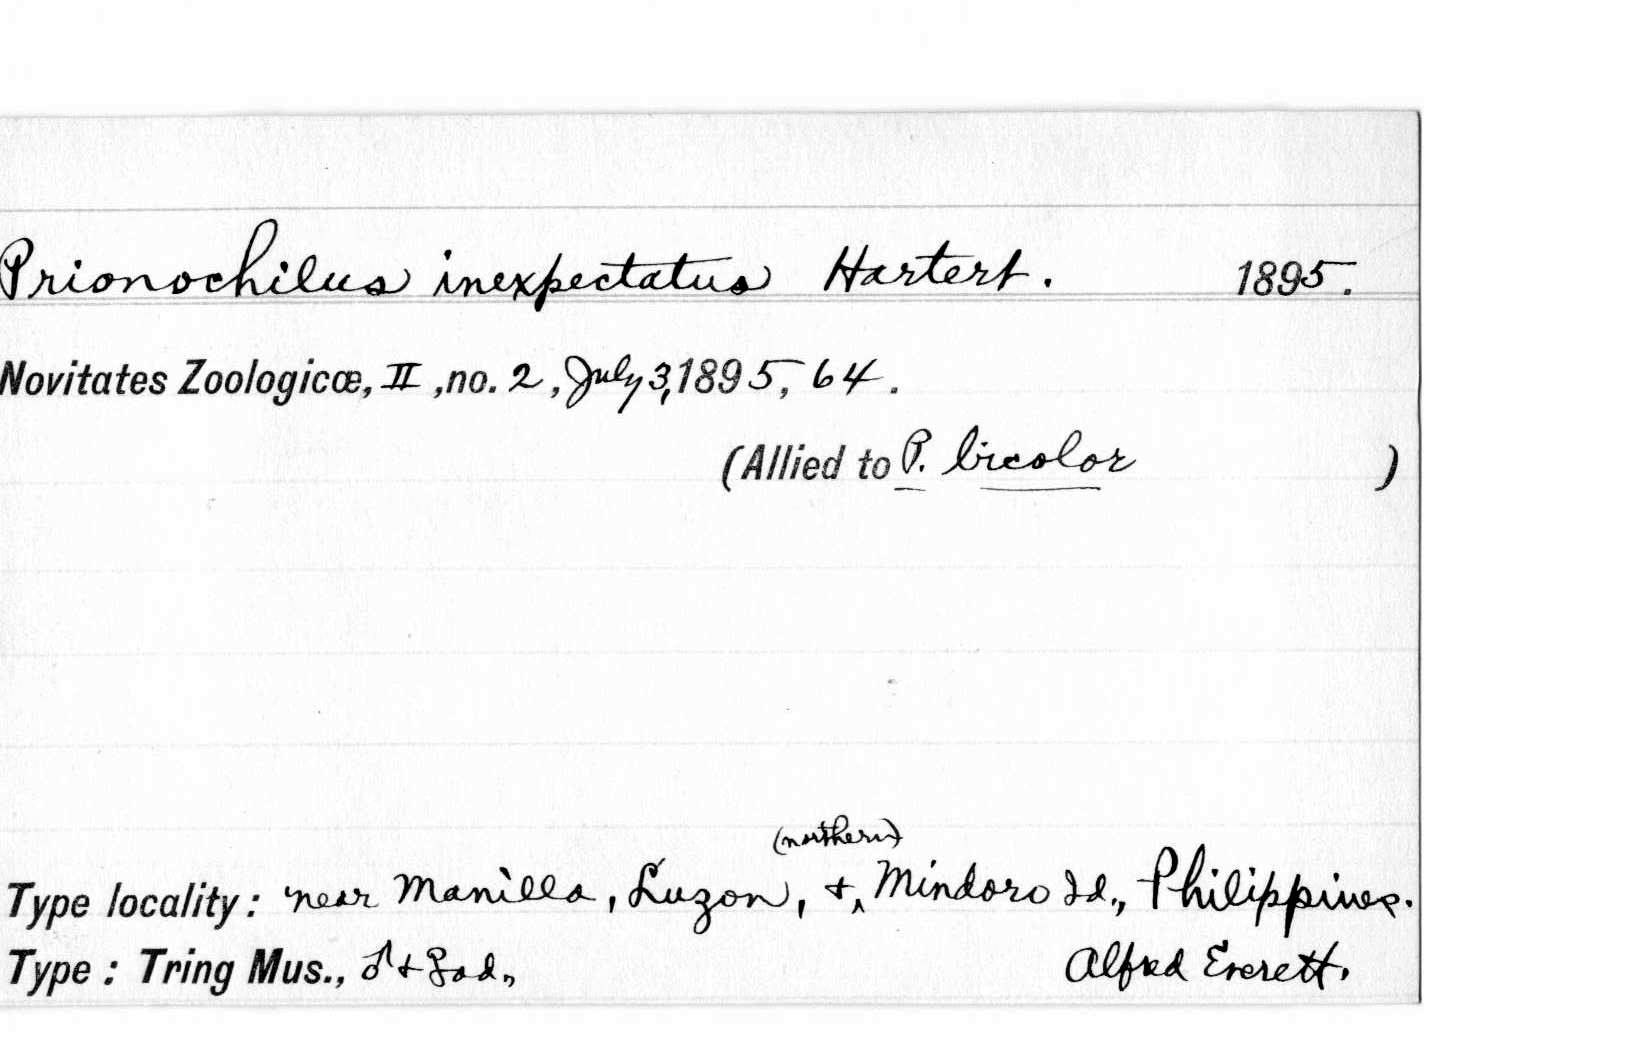 Prionochilus inexpectatus Hartert. 1895.
Novitates Zoologicæ, II, no. 2, July 3, 1895, 64.
(Allied to P. bicolor )
(northern)
Type locality: near Manilla, Luzon, +‸ Mindoro Id., Philippines.
Type: Tring Mus., ♂ + ♀ ad., Alfred Everett.